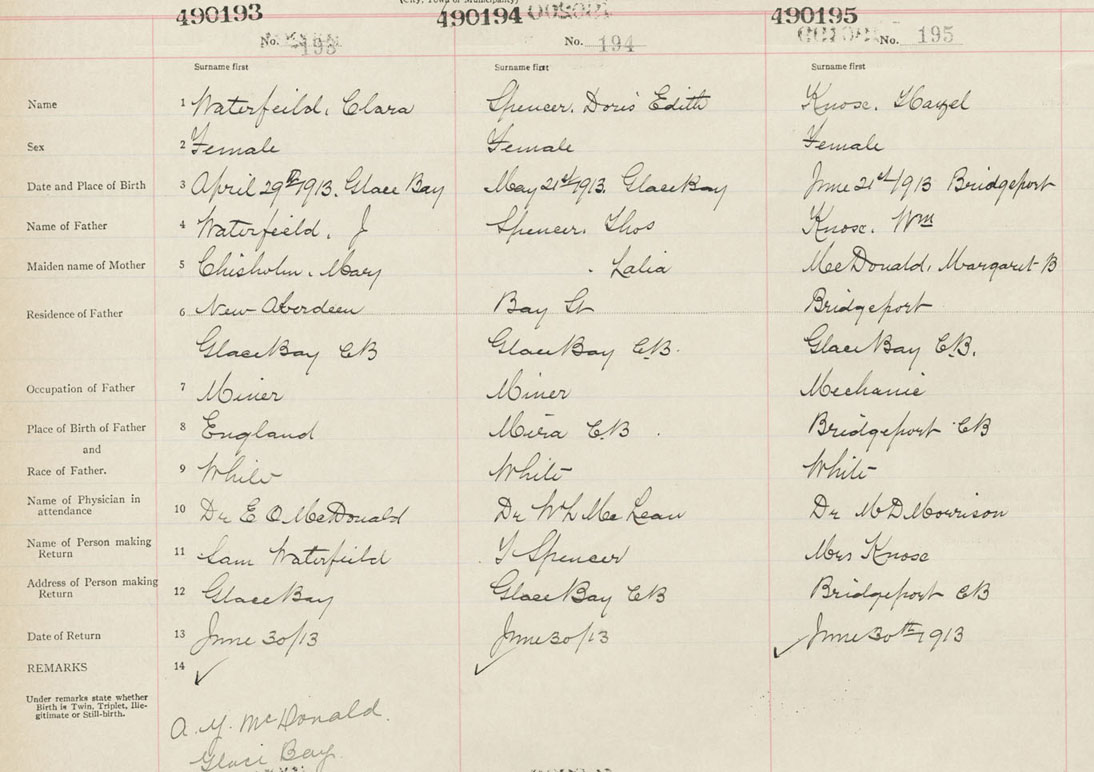 (City, Town or Municipality)
490193 490194 490195
No. 193 No. 194 No. 195
Surname first Surname first Surname first
Name 1 Waterfeild, Clara Spencer, Doris Edith Knose, Hazel
Sex 2 Female Female Female
Date and Place of Birth 3 April 29th 1913. Glace Bay May 21st/1913. Glace Bay June 21st/1913 Bridgeport
Name of Father 4 Waterfeild, J Spencer, Thos Knose, Wm
Maiden name of Mother 5 Chisholm, Mary , Lalia McDonald, Margaret B
Residence of Father 6 New Aberdeen Bay St Bridgeport
Glace Bay CB Glace Bay C.B. Glace Bay C.B.
Occupation of Father 7 Miner Miner Mechanic
Place of Birth of Father 8 England Mira C.B. Bridgeport CB
and
Race of Father. 9 White White White
Name of Physician in
attendance 10 Dr E O McDonald Dr W L McLean Dr M D Morrison
Name of Person making
Return 11 Sam Waterfeild T Spencer Mrs Knose
Address of Person making
Return 12 Glace Bay Glace Bay CB Bridgeport CB
Date of Return 13 June 30/13 June 30/13 June 30th 1913
REMARKS 14 ✓ ✓ ✓
Under remarks state whether
Birth is Twin, Triplet, Ille-
gitimate or Still-birth.
A. Y. McDonald.
Glace Bay